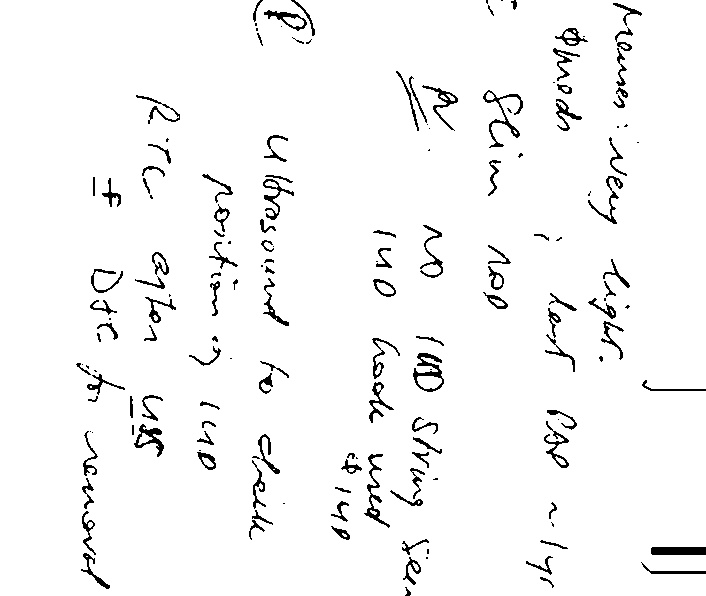 Menses: very light.
Ømeds ; last PAP ~ 1yr
Slim NAD
PV NO IUD string seen
IUD hook used
Ø IUD
Ⓟ
Ultrasound to check
position of IUD
RTC after USS
± D+C for removal